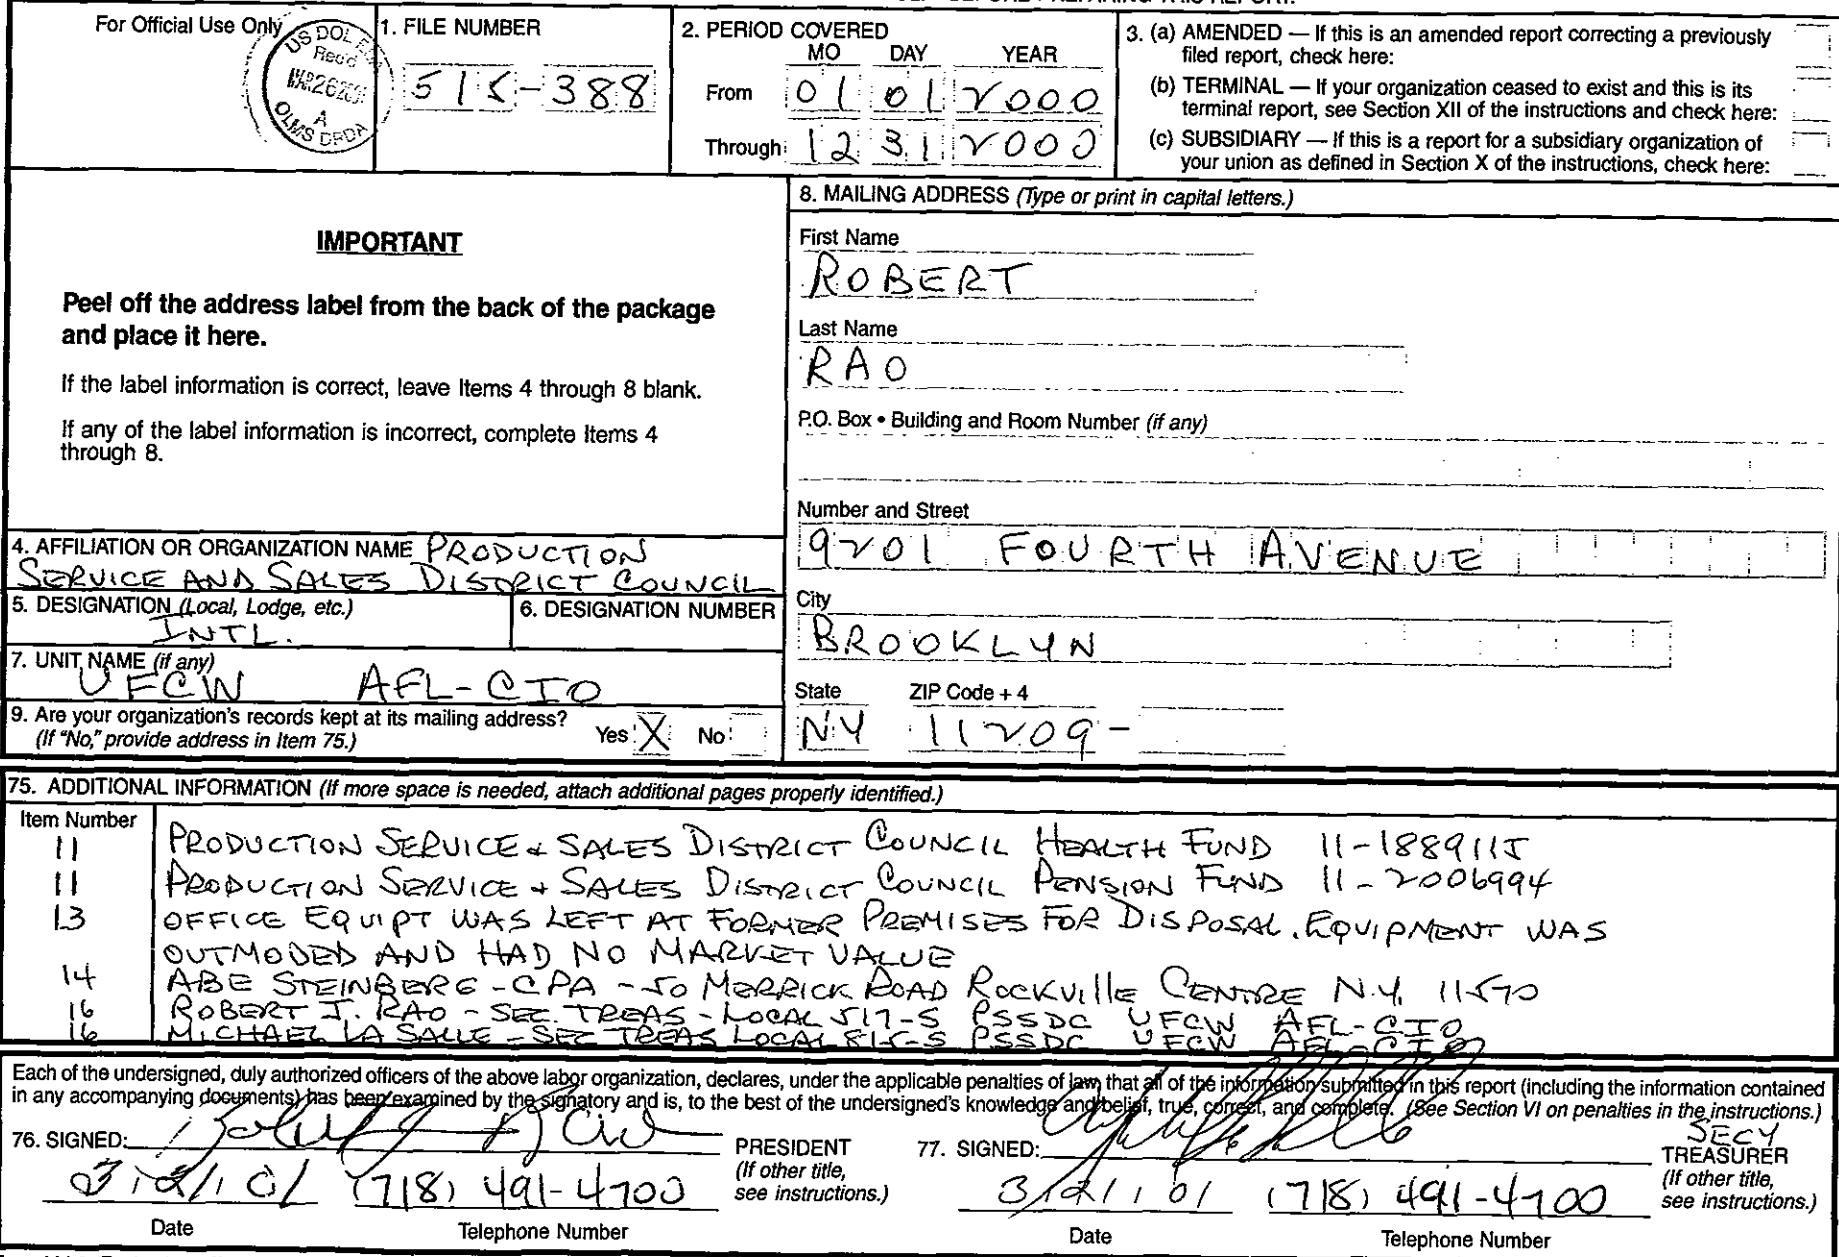 For Official Use Only
US DOL
Rec'd
OLMS DRDA
1. FILE NUMBER
515-388
2. PERIOD COVERED
MO DAY YEAR
From 01 01 2000
Through 12 31 2000
3. (a) AMENDED — If this is an amended report correcting a previously
filed report, check here:
(b) TERMINAL — If your organization ceased to exist and this is its
terminal report, see Section XII of the instructions and check here:
(c) SUBSIDIARY — If this is a report for a subsidiary organization of
your union as defined in Section X of the instructions, check here:
IMPORTANT
Peel off the address label from the back of the package
and place it here.
If the label information is correct, leave Items 4 through 8 blank.
If any of the label information is incorrect, complete Items 4
through 8.
4. AFFILIATION OR ORGANIZATION NAME PRODUCTION
SERVICE AND SALES DISTRICT COUNCIL
5. DESIGNATION (Local, Lodge, etc.)
INTL.
6. DESIGNATION NUMBER
7. UNIT NAME (if any)
UFCW AFL-CIO
9. Are your organization's records kept at its mailing address?
(If "No," provide address in Item 75.)
Yes X No
8. MAILING ADDRESS (Type or print in capital letters.)
First Name
ROBERT
Last Name
RAO
P.O. Box • Building and Room Number (if any)
Number and Street
9201 FOURTH AVENUE
City
BROOKLYN
State ZIP Code + 4
NY 11209-
75. ADDITIONAL INFORMATION (If more space is needed, attach additional pages properly identified.)
Item Number
11 PRODUCTION SERVICE & SALES DISTRICT COUNCIL HEALTH FUND 11-1889115
11 PRODUCTION SERVICE & SALES DISTRICT COUNCIL PENSION FUND 11-2006994
13 OFFICE EQUIPT WAS LEFT AT FORMER PREMISES FOR DISPOSAL. EQUIPMENT WAS
OUTMODED AND HAD NO MARKET VALUE
14 ABE STEINBERG - CPA - 50 MERRICK ROAD ROCKVILLE CENTRE N.Y. 11570
16 ROBERT J. RAO - SEC. TREAS - LOCAL 517-S PSSDC UFCW AFL-CIO
16 MICHAEL LA SALLE - SEC TREAS LOCAL 815-S PSSDC UFCW AFL-CIO
Each of the undersigned, duly authorized officers of the above labor organization, declares, under the applicable penalties of law, that all of the information submitted in this report (including the information contained
in any accompanying documents) has been examined by the signatory and is, to the best of the undersigned's knowledge and belief, true, correct, and complete. (See Section VI on penalties in the instructions.)
76. SIGNED:
PRESIDENT
(If other title,
see instructions.)
3/21/01 (718) 491-4700
Date Telephone Number
77. SIGNED:
SECY
TREASURER
(If other title,
see instructions.)
3/21/01 (718) 491-4700
Date Telephone Number